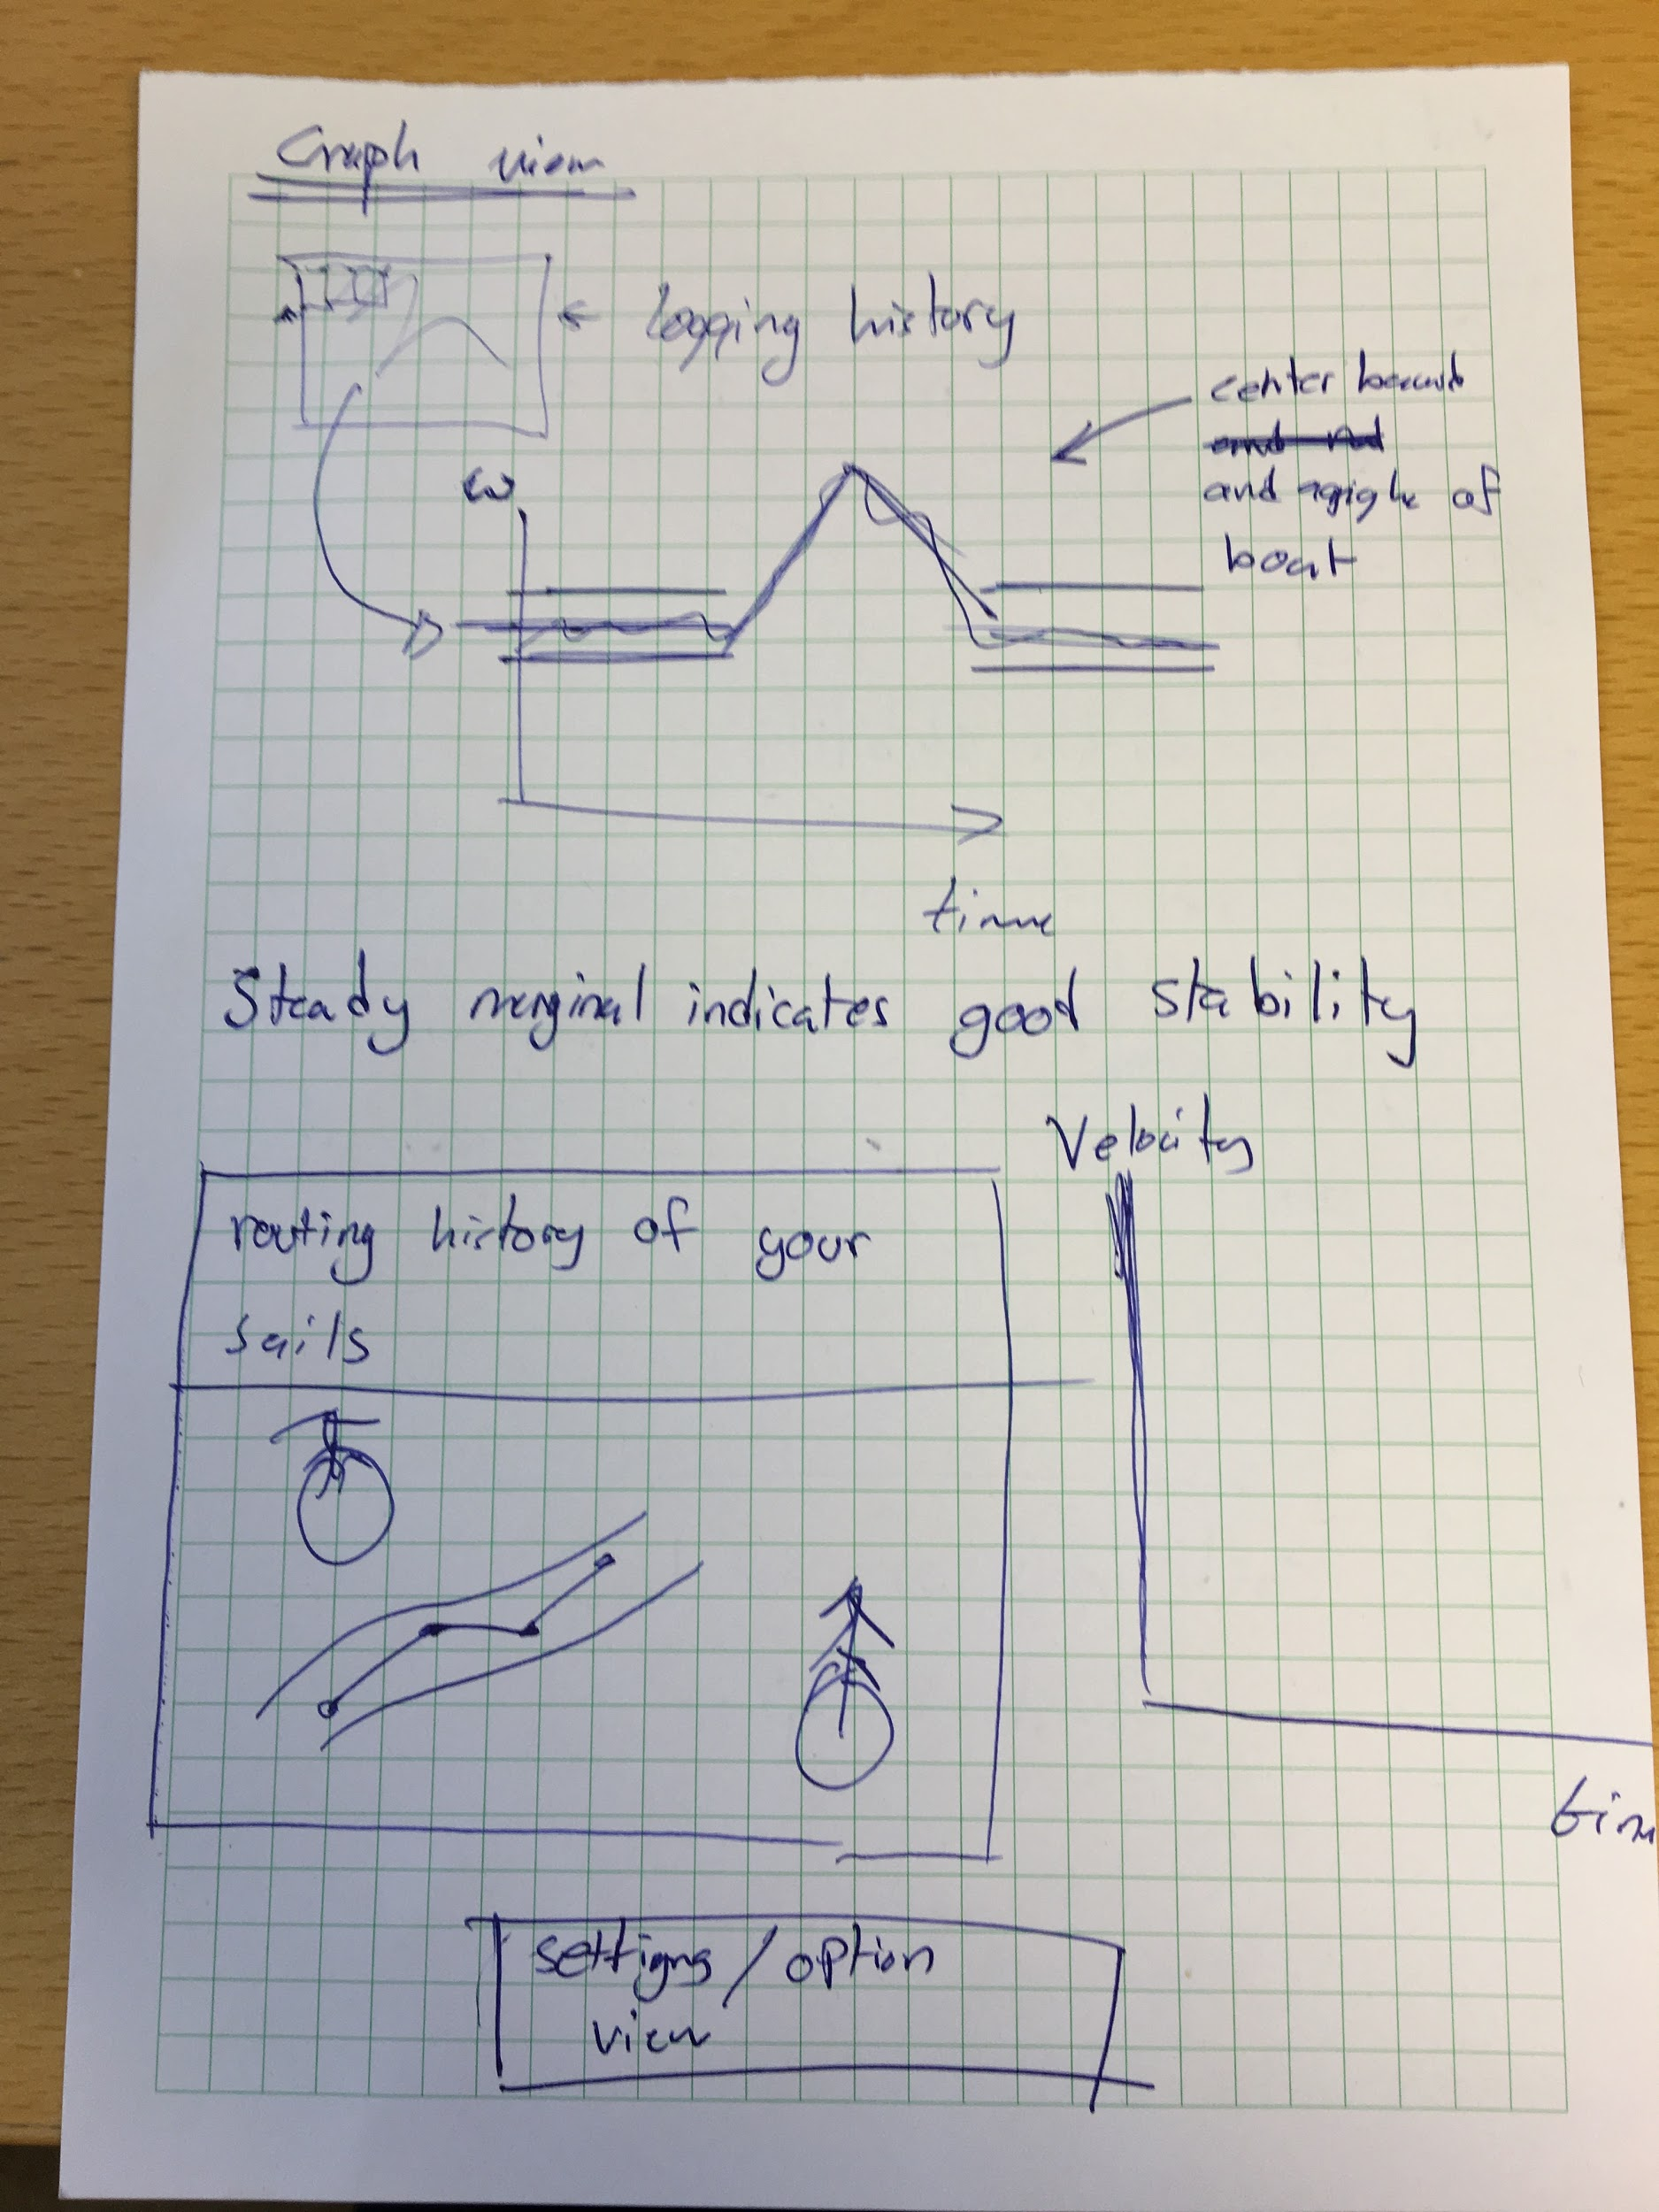 Graph view
← logging history
center
and
and of
boat
ω
time
Steady marginal indicates good stability
Velocity
routing history of your
sails
tim
settigns / option
view